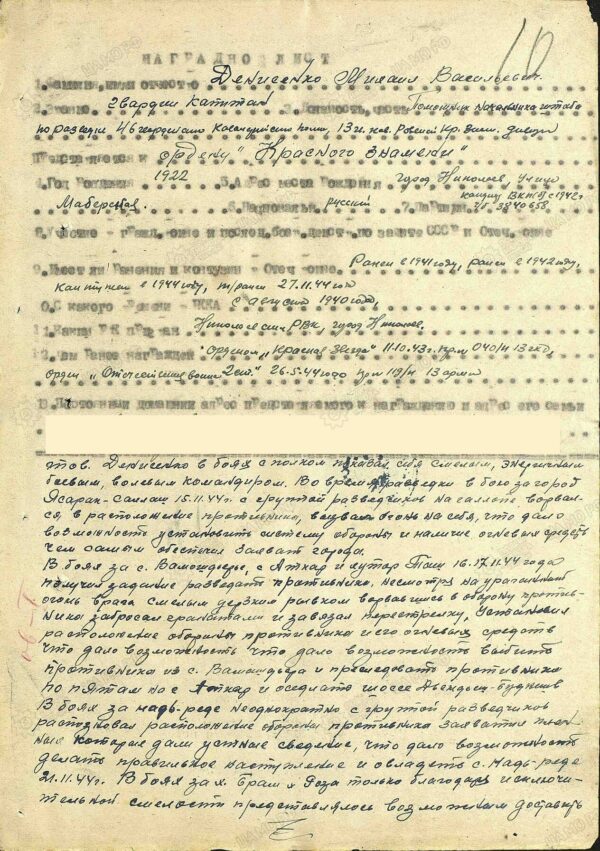 10
НАГРАДНОЙ ЛИСТ
1. Фамилия, имя и отчество Денисенко Михаил Васильевич
2. Звание Гвардии Капитан 3. Должность, часть Помощник начальника штаба
по разведке 46 гвардейского Кавалерийского полка, 13 гв. кав. Ровенской Кр. Зн. дивизии
Представляется к ордену "Красного Знамени"
4. Год Рождения 1922 5. Адрес места Рождения город Николаев, улица
Маберская. 6. Национальн. русский 7. Партийн. кандид. ВКП(б) с 1942 г.
№ 3840658
8. Участие
9. Имеет ли ранения и контузии в Отеч. войне. Ранен в 1941 году, ранен в 1942 году,
контужен в 1944 году, т/ранен 27.11.44 год
10. С какого времени в РККА с августа 1940 года,
11. Каким РВК призван Николаевским РВК, город Николаев.
12. Чем ранее награжден Орденом "Красная Звезда" 11.10.43 г. пр. № 040/н 13 гкд,
орден "Отечественной войны 2 ст." 26.5.44 года пр. № 119/н 13 армии
13. Постоянный домашний адрес представляемого к награждению и адрес его семьи
тов. Денисенко в боях с полком показал себя смелым, энергичным
боевым, волевым командиром. Во время разведки в бою за город
Ясарак-Саллаш 15.11.44 г. с группой разведчиков на галопе ворвал-
ся, в расположение противника, вызвал огонь на себя, что дало
возможность установить систему обороны и наличие огневых средств
чем самым обеспечил захват города.
В боях за с. Вамошдьерк, с Аткар и хутор Таш 16.17.11.44 года
получил задание разведать противника, несмотря на ураганный
огонь врага смелым дерзким рывком ворвавшись в оборону против-
ника забросал гранатами и завязал перестрелку, установил
расположение обороны противника и его огневых средств
что дало возможность что дало возможность выбить
противника из с. Вамошдьерк и преследовать противника
по пятам на с Аткар и оседлать шоссе
В боях за надь-реде неоднократно с группой разведчиков
расположение обороны противника захватил плен-
ные которые дали устные сведение, что дало возможность
делать правильное наступление и овладеть с. Надь-реде
21.11.44 г. В боях за х. только благодаря исключи-
тельной смелости представлялось возможным доставить